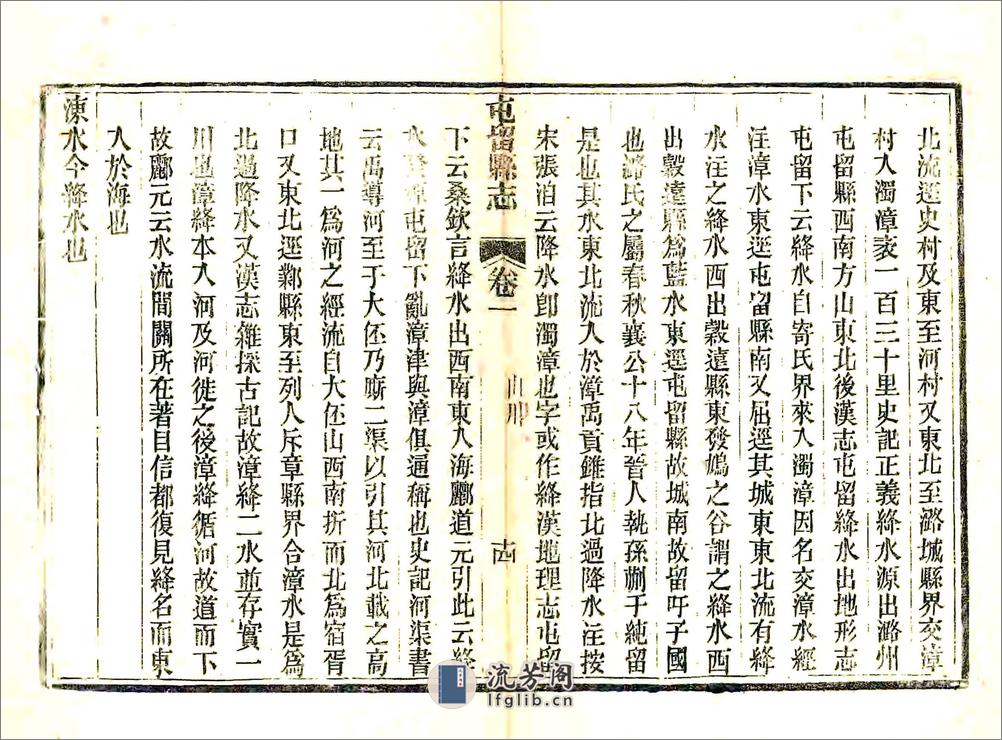 北流逕史村及東至河村又東北至潞城縣界交漳
村入濁漳袤一百三十里史記正義絳水源出潞州
屯留縣西南方山東北後漢志屯留絳水出地形志
屯留下云絳水自寄氏界來入濁漳因名交漳水經
注漳水東逕屯留縣南又屈逕其城東東北流有絳
水注之絳水西出穀遠縣東發鳩之谷謂之絳水西
出穀遠縣為藍水東逕屯留縣故城南故留吁子國
也潞氏之屬春秋襄公十八年晉人執孫蒯于純留
是也其水東北流入於漳禹貢錐指北過降水注按
宋張洎云降水卽濁漳也字或作絳漢地理志屯留
下云桑欽言絳水出西南東入海酈道元引此云絳
水發源屯留下亂漳津與漳俱通稱也史記河渠書
云禹導河至于大伾乃廝二渠以引其河北載之高
地其一為河之經流自大伾山西南折而北為宿胥
口又東北逕鄴縣東至列人斥章縣界合漳水是為
北過降水又漢志雜採古記故漳絳二水並存實一
川也漳絳本入河及河徙之後漳絳循河故道而下
故酈元云水流間關所在著目信都復見絳名而東
入於海也
涷水今絳水也
屯留縣志 卷一 山川 十四
流芳阁
lfglib.cn